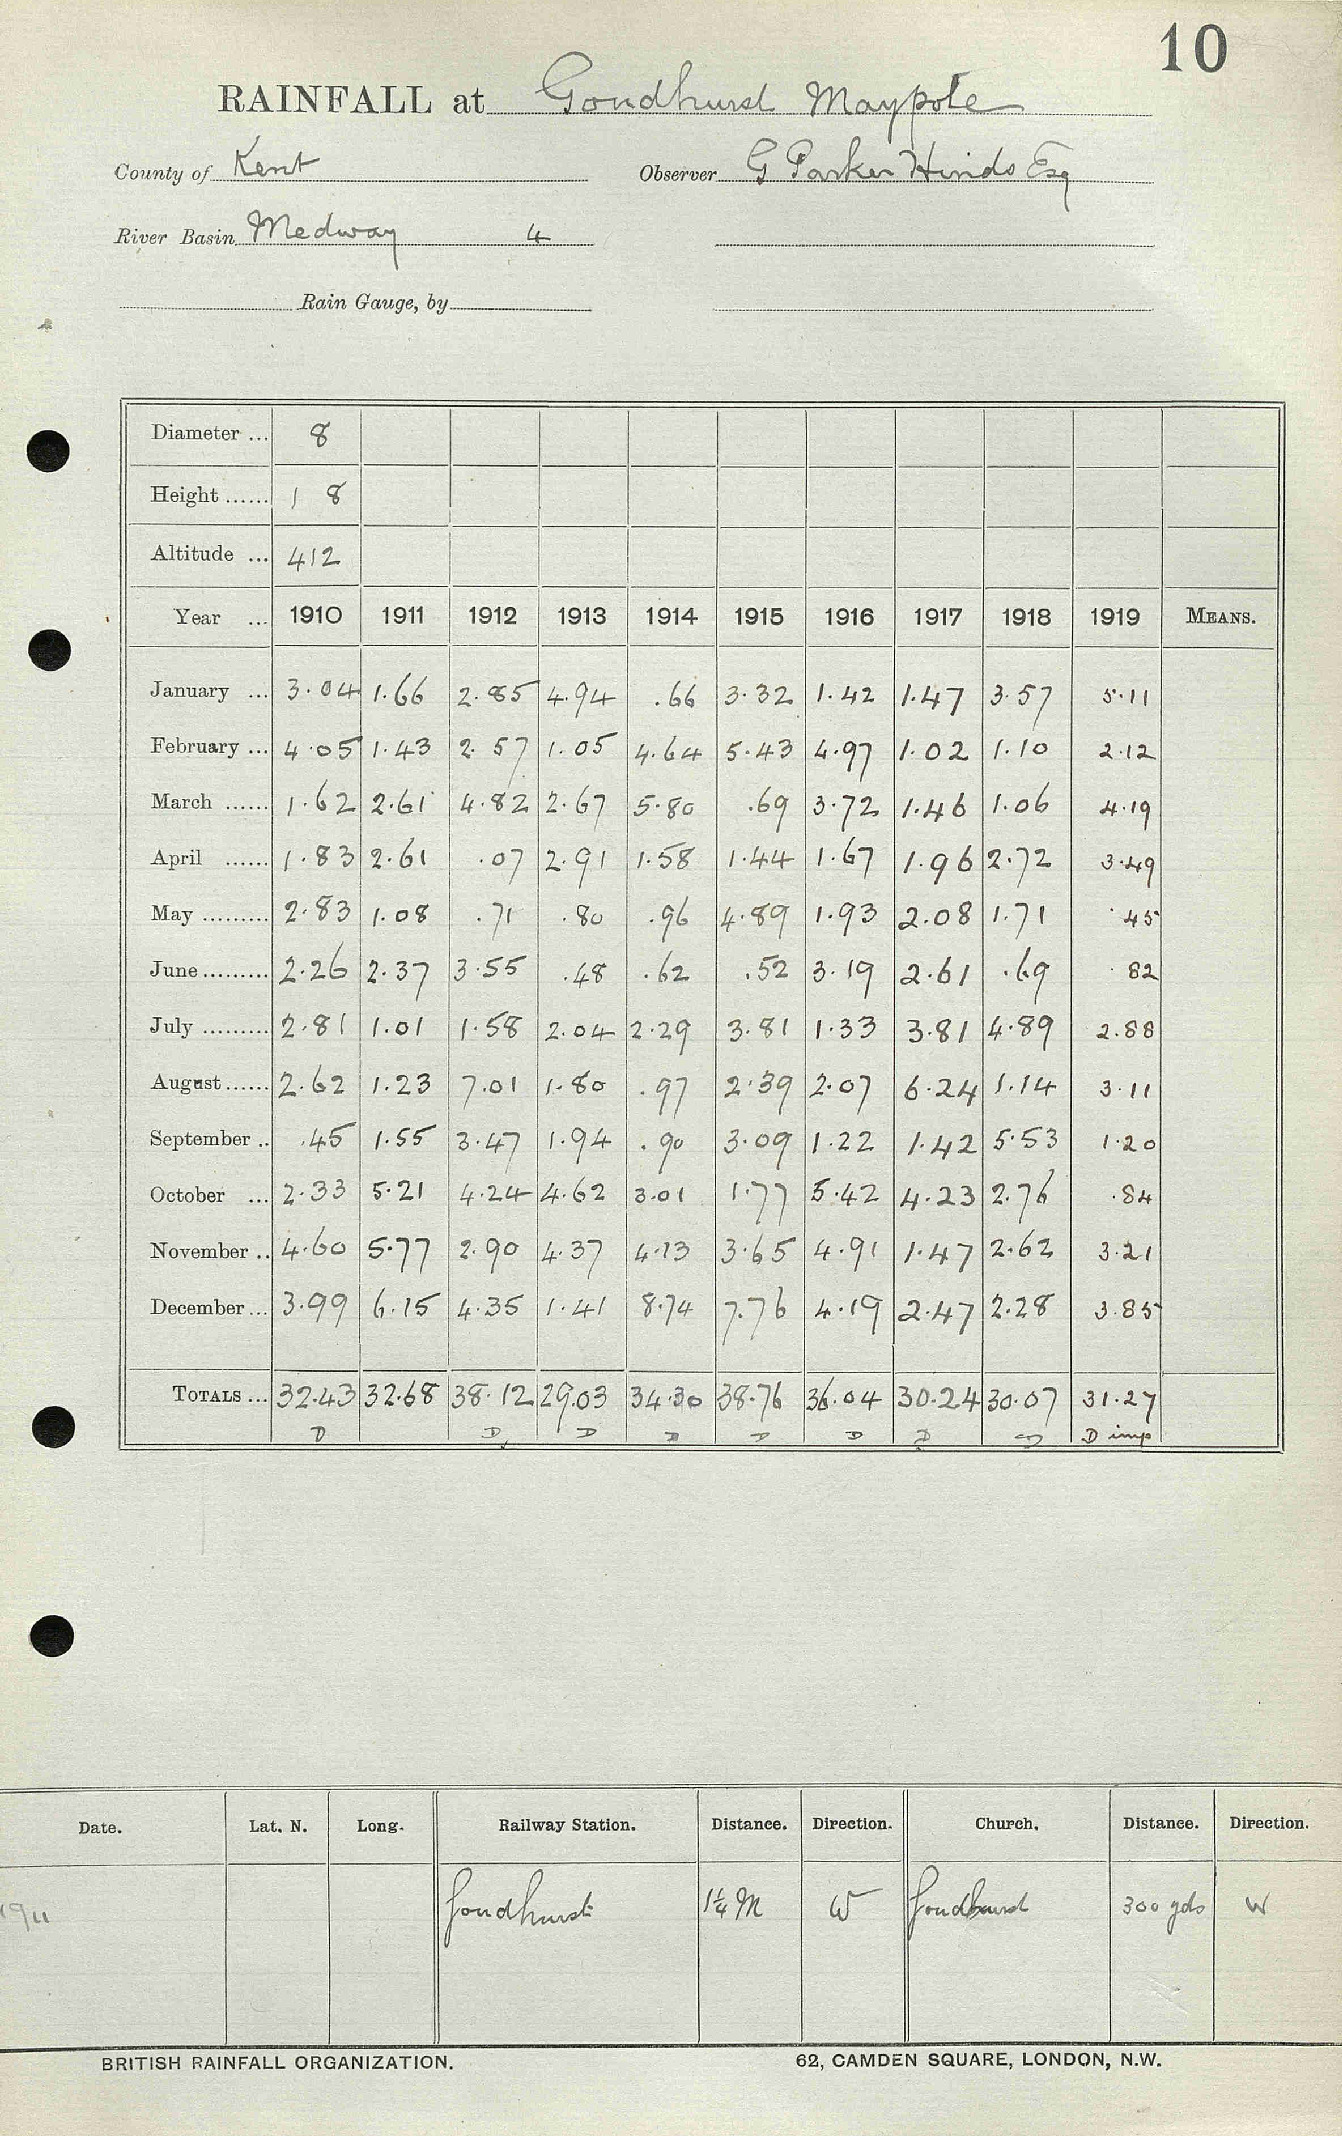 10
RAINFALL at Goudhurst Maypole
County of Kent Observer G Parker Hinds Esq
River Basin Medway 4
Rain Gauge, by
Diameter ... 8
Height ...... 1 8
Altitude ... 412
Year ... 1910 1911 1912 1913 1914 1915 1916 1917 1918 1919 MEANS.
January ... 3.04 1.66 2.85 4.94 .66 3.32 1.42 1.47 3.57 5.11
February ... 4.05 1.43 2.57 1.05 4.64 5.43 4.97 1.02 1.10 2.12
March ...... 1.62 2.61 4.82 2.67 5.80 .69 3.72 1.46 1.06 4.19
April ...... 1.83 2.61 .07 2.91 1.58 1.44 1.67 1.96 2.72 3.49
May ......... 2.83 1.08 .71 .80 .96 4.89 1.93 2.08 1.71 .45
June ......... 2.26 2.37 3.55 .48 .62 .52 3.19 2.61 .69 .82
July ......... 2.81 1.01 1.58 2.04 2.29 3.81 1.33 3.81 4.89 2.88
August ...... 2.62 1.23 7.01 1.80 .97 2.39 2.07 6.24 1.14 3.11
September .. .45 1.55 3.47 1.94 .90 3.09 1.22 1.42 5.53 1.20
October ... 2.33 5.21 4.24 4.62 3.01 1.77 5.42 4.23 2.76 .84
November .. 4.60 5.77 2.90 4.37 4.13 3.65 4.91 1.47 2.62 3.21
December ... 3.99 6.15 4.35 1.41 8.74 7.76 4.19 2.47 2.28 3.85
TOTALS ... 32.43 32.68 38.12 29.03 34.30 38.76 36.04 30.24 30.07 31.27
D D D D D D D D D imp
Date. Lat. N. Long. Railway Station. Distance. Direction. Church. Distance. Direction.
1911 Goudhurst 1¼ M W Goudhurst 300 yds W
BRITISH RAINFALL ORGANIZATION. 62, CAMDEN SQUARE, LONDON, N.W.